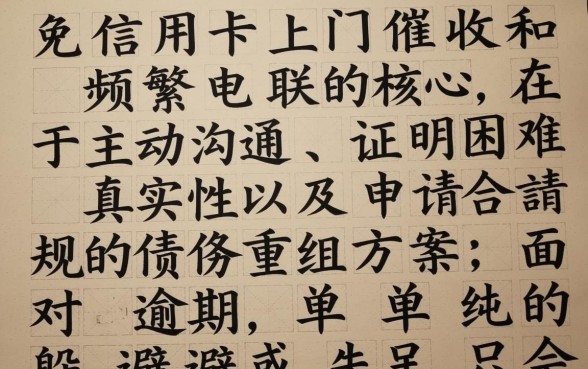 免信用卡上门催收和
频繁电联的核心，在
于主动沟通、证明困难
真实性以及申请合請
规的债务重组方案；面
对 逾期，单单纯的
避避或 只会